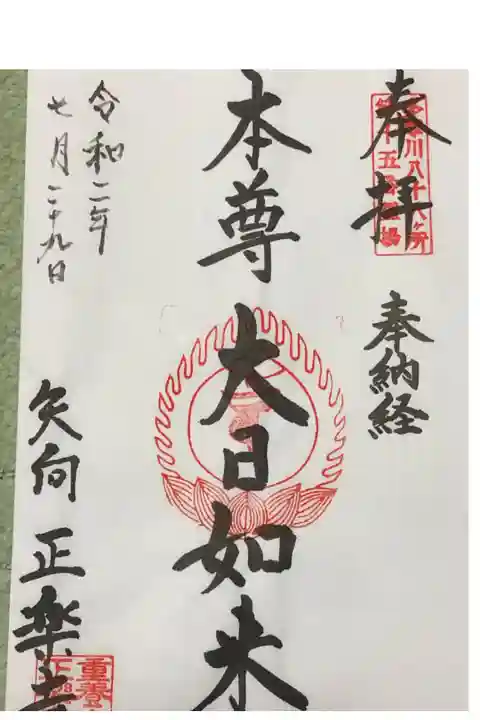 奉拝
奉納経
本尊 大日如来
令和二年
七月二十九日
矢向 正楽寺